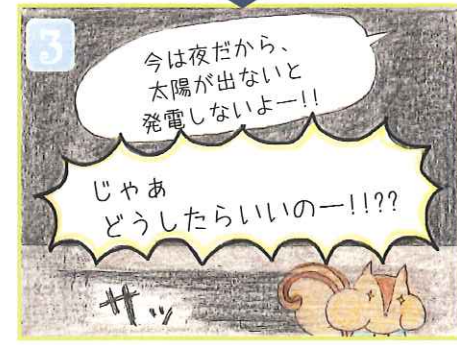 3
今は夜だから、
太陽が出ないと
発電しないよー!!
じゃあ
どうしたらいいのー!!??
サッ